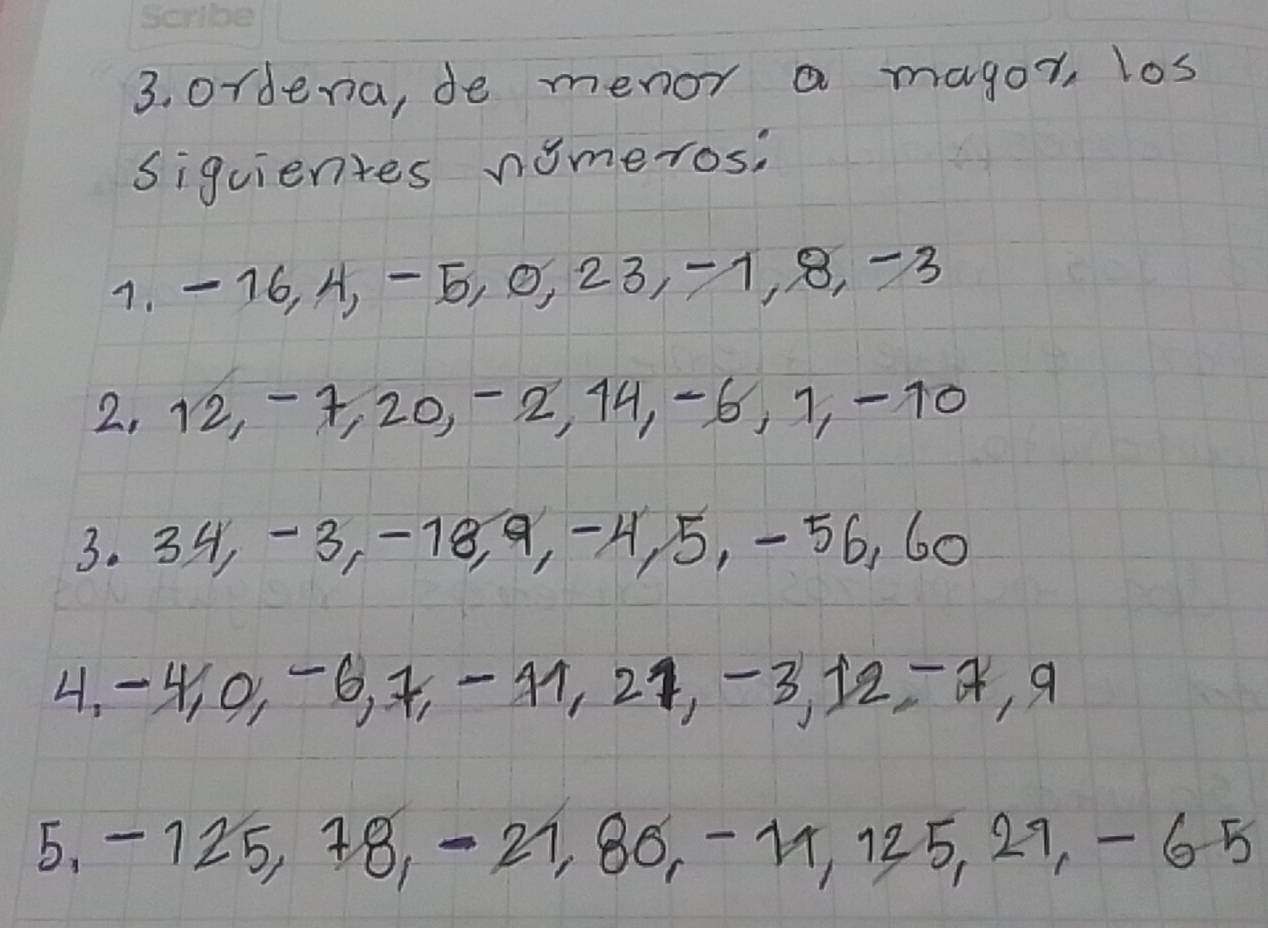 Scribe
3. ordena, de menor a magor, los
siguientes números:
1. -16, 4, -5, 0, 23, -1, 8, -3
2. 12, -7, 20, -2, 14, -6, 1, -10
3. 34, -3, -18, 9, -4, 5, -56, 60
4. -4, 0, -6, 7, -11, 21, -3, 12, -7, 9
5. -125, 78, -21, 86, -11, 125, 21, -65